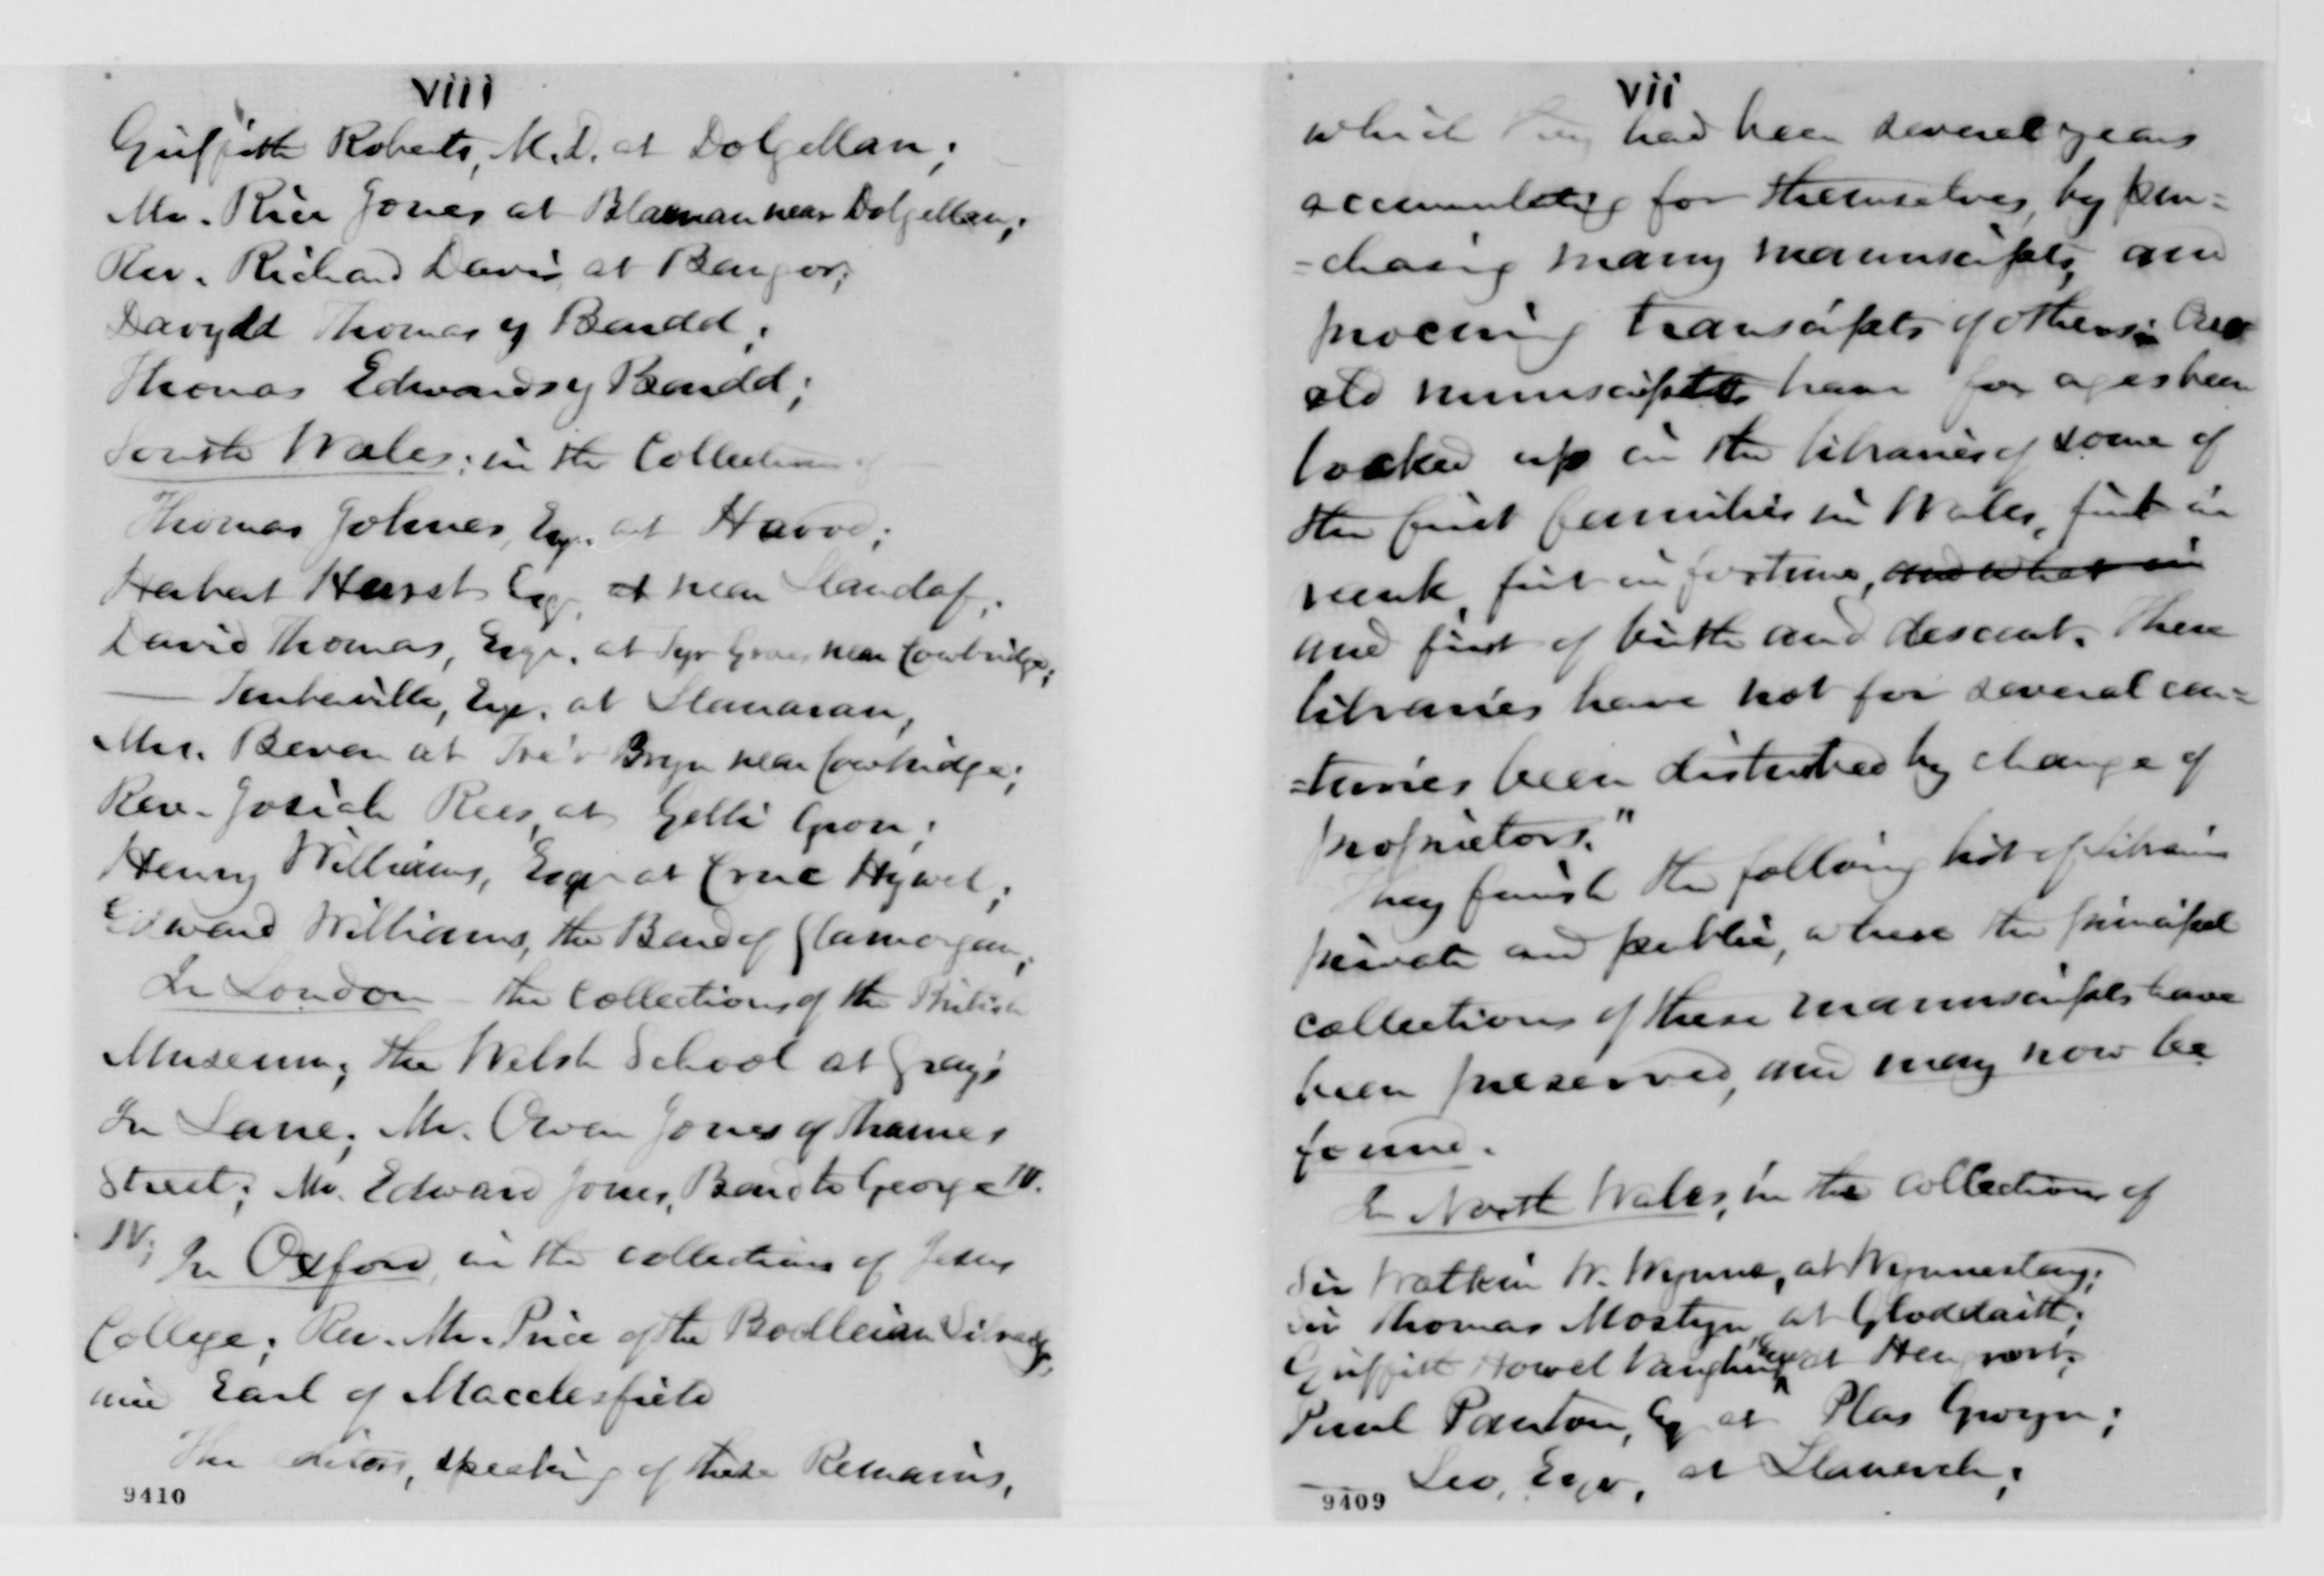 viii
Griffith Roberts, M.D. at Dolgellau;
Mr. Rice Jones at Blaenau near Dolgellau;
Rev. Richard Davis at Bangor;
Davydd Thomas y Bardd;
Thomas Edwards y Bardd;
South Wales: in the Collections of
Thomas Johnes, Esq. at Havod;
Herbert Hurst Esq. at near Llandaf;
David Thomas, Esqr. at Tyr near Cowbridge;
— Turberville, Esqr. at Llanaran,
Mrs. Bevan at Tre'r Bryn near Cowbridge;
Rev. Josiah Rees, at Gelli Gron;
Henry Williams, Esqr at Cruc Hywel;
Edward Williams, the Bard of Glamorgan;
In London – the Collections of the British
Museum; the Welsh School at Gray's
In Lane; Mr. Owen Jones of Thames
Street; Mr. Edward Jones, Bard to George IV.
IV; In Oxford, in the collections of Jesus
College; Rev. Mr. Price of the Bodleian Library;
and Earl of Macclesfield
The editors, speaking of these Remains,
9410
vii
which they had been several years
accumulating for themselves, by pur=
=chasing many manuscripts, and
procuring transcripts of others. Our
old munscripts have for ages been
locked up in the libraries of some of
the first families in Wales, first in
rank, first in fortune, and what in
and first of birth and descent. These
libraries have not for several cen=
=turies been disturbed by change of
proprietors."
They furnish the following list of libraries
private and public, where the principal
collections of these manuscripts have
been preserved, and may now be
found.
In North Wales, in the collections of
Sir Watkin W. Wynne, at Wynnestay;
Sir Thomas Mostyn at Gloddaith;
Griffith Howel Vaughan, Esqr at Hengwrt;
Paul Panton, Esq at Plas Gwyn;
— Leo, Esqr, at Llanerch;
9409